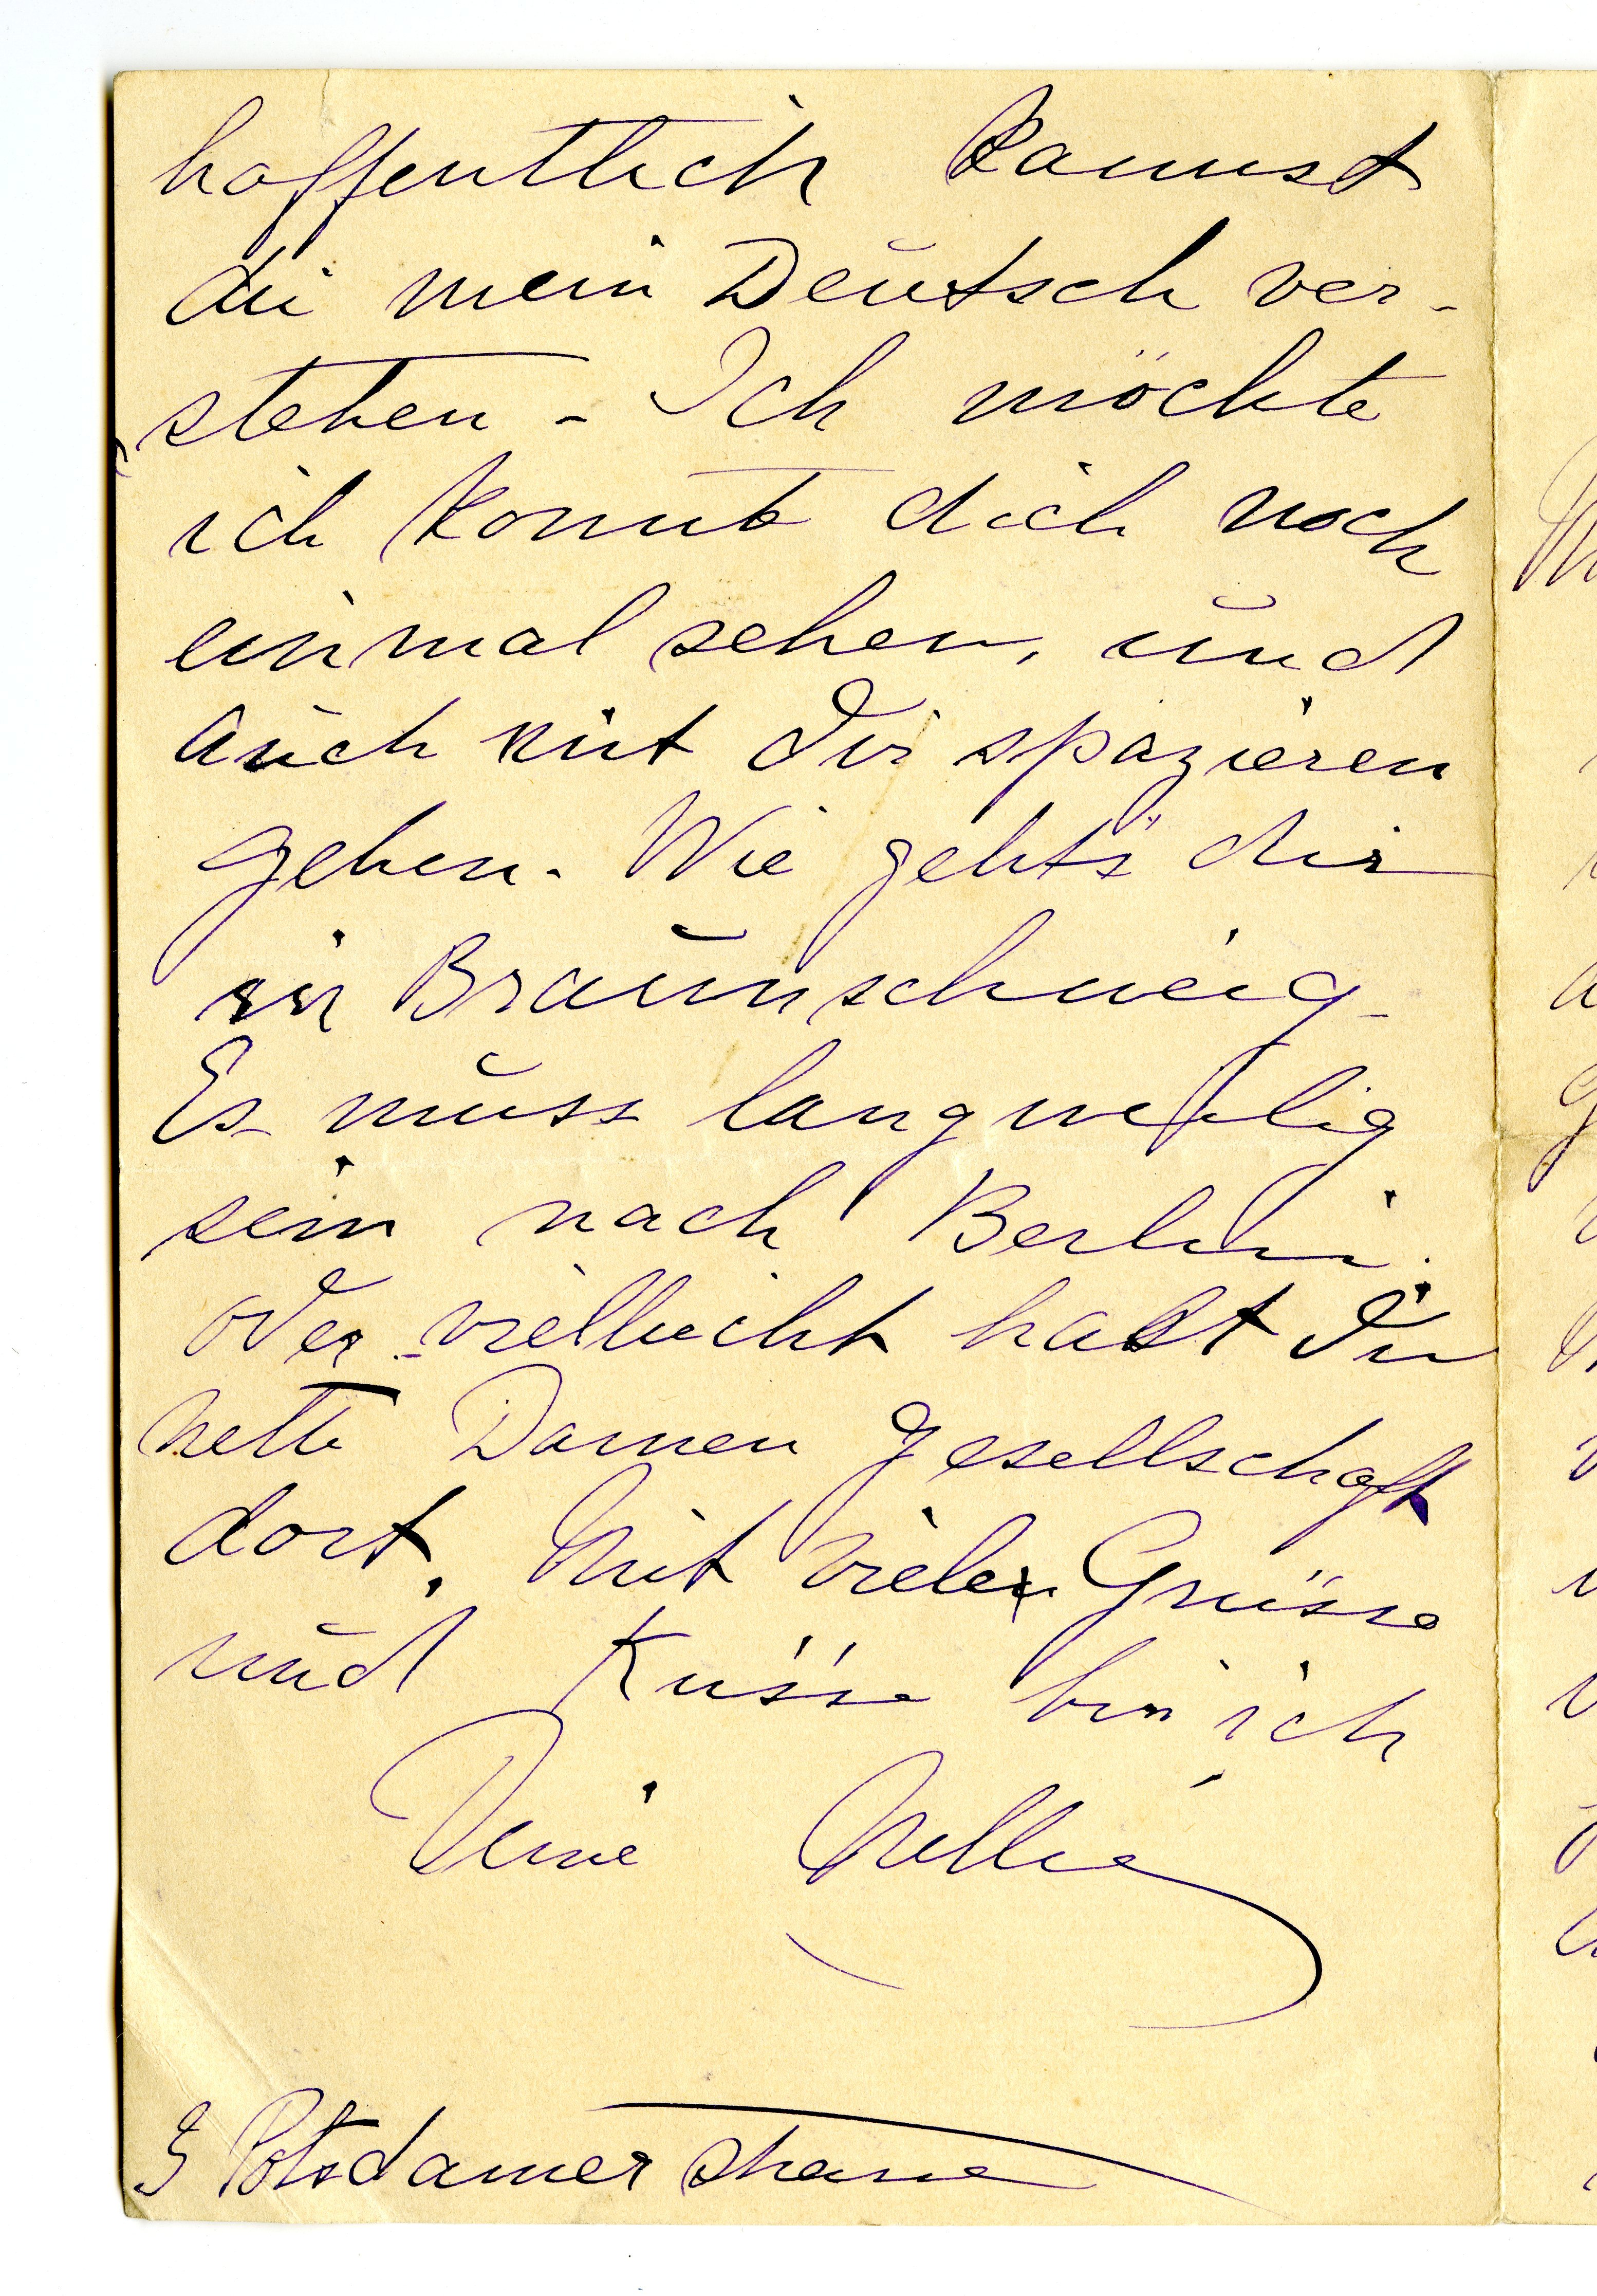 hoffentlich kannst
du mein Deutsch ver-
stehen - Ich möchte
ich konnte dich noch
einmal sehen, und
auch mit Dir spazieren
gehen. Wie geht's dir
in Braunschweig -
Es muss langweilig
sein nach Berlin.
oder vielleicht hast Du
nette Damen gesellschaft
dort. Mit vielen Grüsse
und Küsse bin ich
Deine Nellie
9 Potsdamer strasse